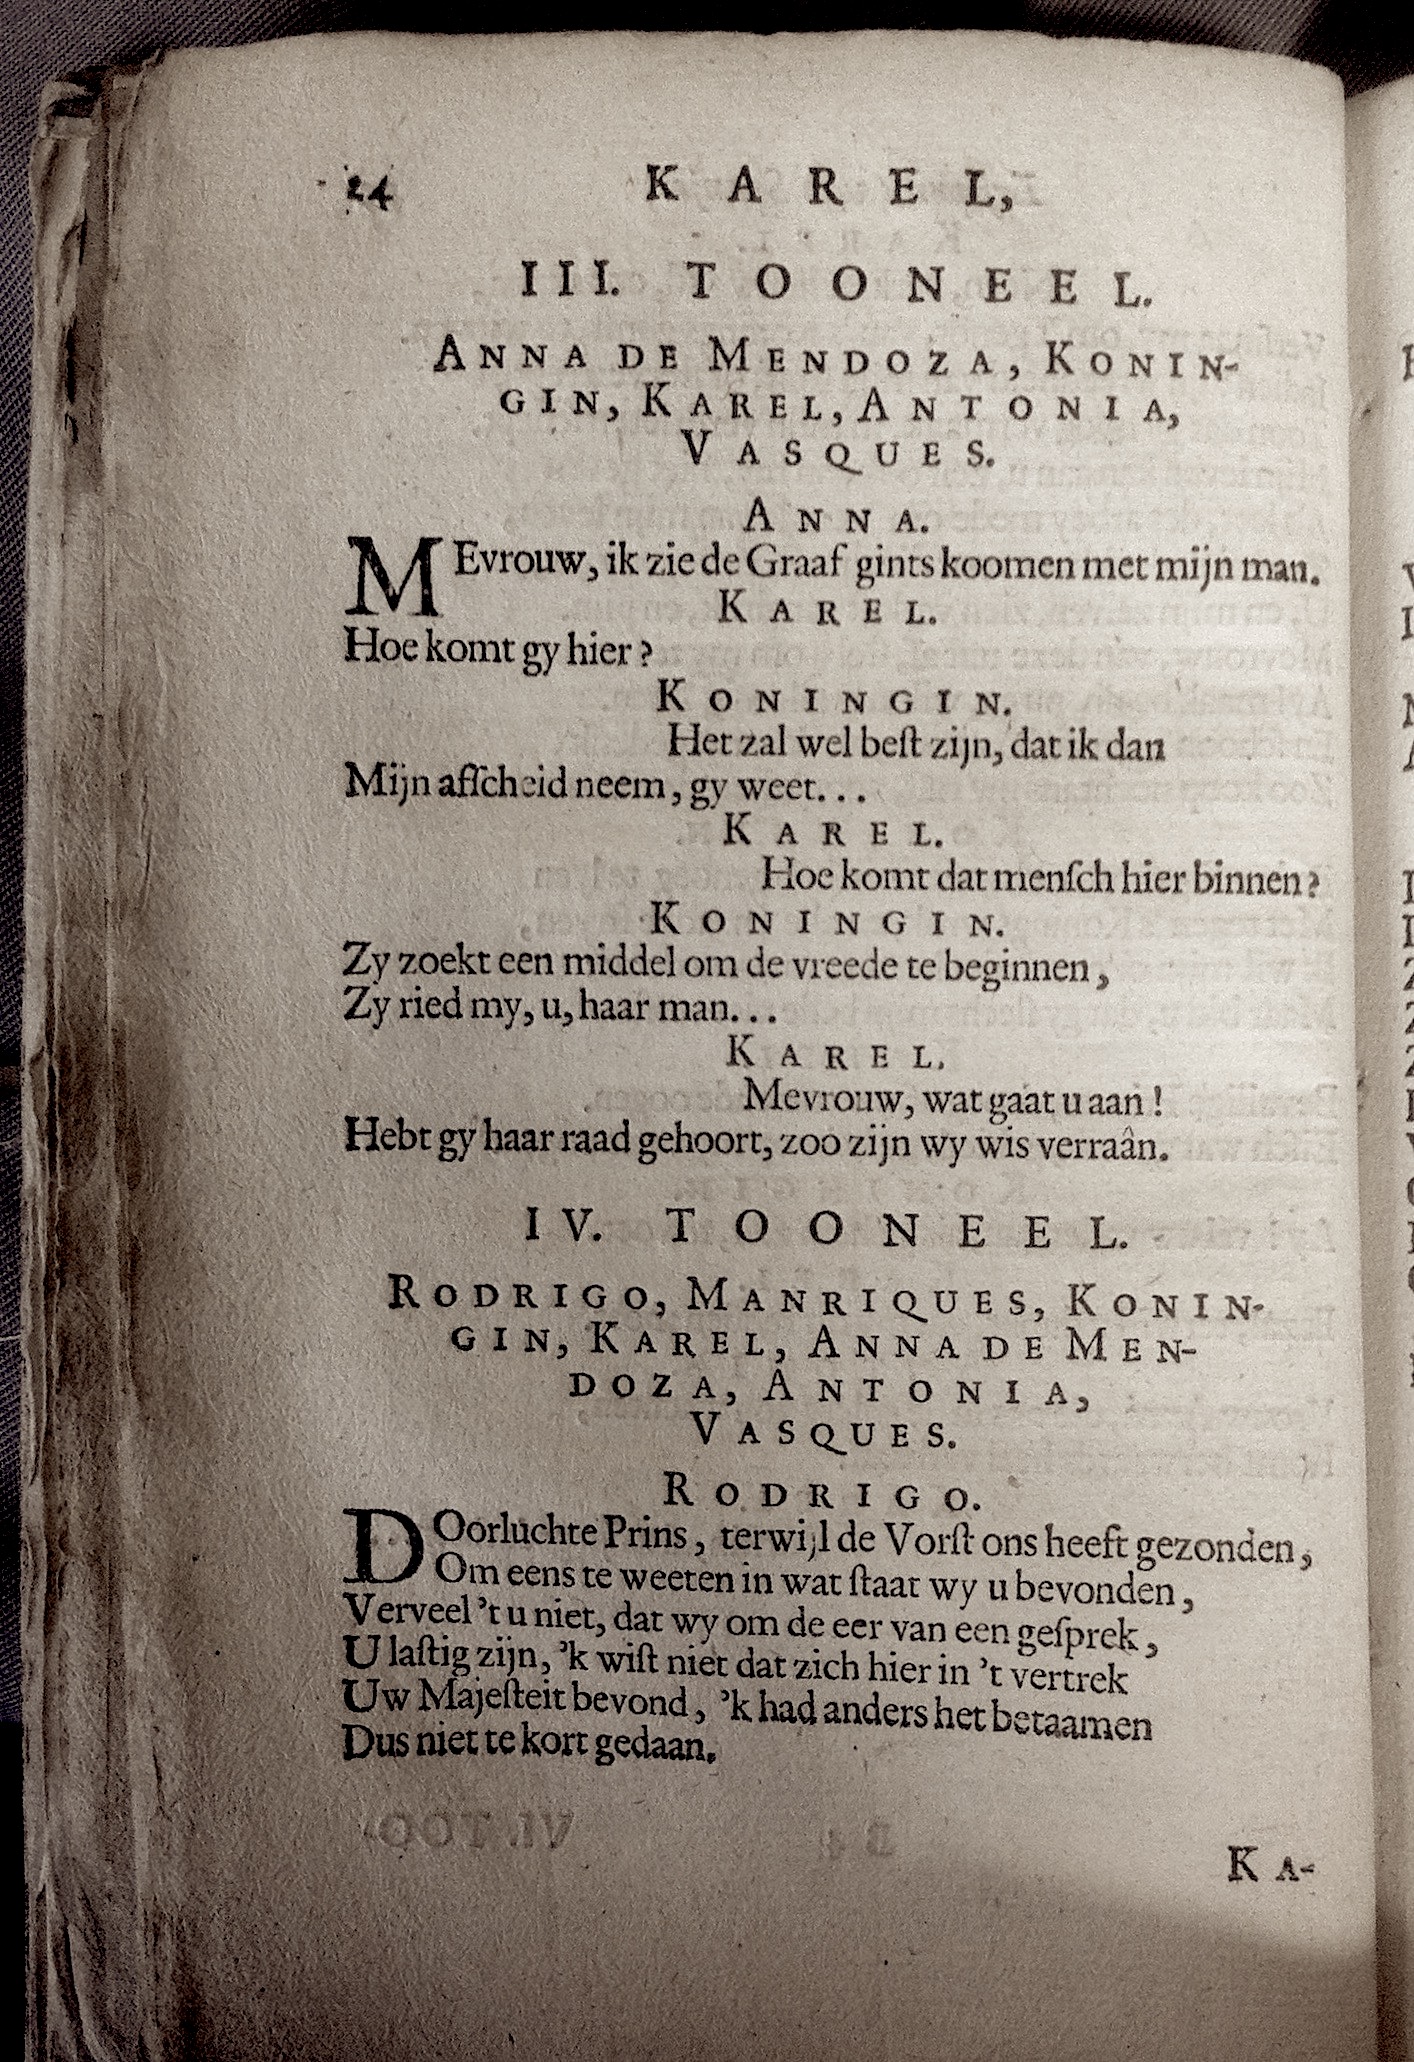 24 KAREL,
III. TOONEEL.
ANNA DE MENDOZA, KONIN-
GIN, KAREL, ANTONIA,
VASQUES.
ANNA.
MEvrouw, ik zie de Graaf gints koomen met mijn man.
KAREL.
Hoe komt gy hier?
KONINGIN.
Het zal wel beſt zijn, dat ik dan
Mijn afſcheid neem, gy weet...
KAREL.
Hoe komt dat menſch hier binnen?
KONINGIN.
Zy zoekt een middel om de vreede te beginnen,
Zy ried my, u, haar man...
KAREL.
Mevrouw, wat gaat u aan!
Hebt gy haar raad gehoort, zoo zijn wy wis verraân.
IV. TOONEEL.
RODRIGO, MANRIQUES, KONIN-
GIN, KAREL, ANNA DE MEN-
DOZA, ANTONIA,
VASQUES.
RODRIGO.
DOorluchte Prins, terwijl de Vorſt ons heeft gezonden,
Om eens te weeten in wat ſtaat wy u bevonden,
Verveel 't u niet, dat wy om de eer van een geſprek,
U laſtig zijn, 'k wiſt niet dat zich hier in 't vertrek
Uw Majeſteit bevond, 'k had anders het betaamen
Dus niet te kort gedaan.
KA-